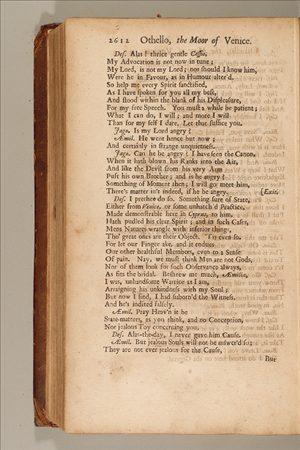 2612 Othello, the Moor of Venice.
Des. Alas ! thrice gentle Cassio,
My Advocation is not now in tune ;
My Lord, is not my Lord ; nor should I know him,
Were he in Favour, as in Humour alter'd.
So help me every Spirit sanctified,
As I have spoken for you all my best,
And stood within the blank of his Displeasure,
For my free Speech. You must a while be patient ;
What I can do, I will ; and more I will
Than for my self I dare. Let that suffice you.
Jago. Is my Lord angry ?
Æmil. He went hence but now ;
And certainly in strange unquietness.
Jago. Can he be angry ? I have seen the Canon,
When it hath blown his Ranks into the Air,
And like the Devil from his very Arm
Puft his own Brother ; and is he angry ?
Something of Moment then ; I will go meet him,
There's matter in't indeed, if he be angry. [Exit.
Des. I prethee do so. Something sure of State,
Either from Venice, or some unhatch'd Practice,
Made demonstrable here in Cyprus, to him,
Hath pudled his clear Spirit ; and in such Cases,
Mens Natures wrangle with inferior things,
Tho' great ones are their Object. 'Tis even so.
For let our Finger ake, and it endues
Our other healthful Members, even to a Sense
Of pain. Nay, we must think Men are not Gods,
Nor of them look for such Observance always,
As fits the bridal. Beshrew me much, Æmilia,
I was, unhandsome Warrior as I am,
Arraigning his unkindness with my Soul ;
But now I find, I had suborn'd the Witness,
And he's indited falsely.
Æmil. Pray Heav'n it be
State-matters, as you think, and no Conception,
Nor jealous Toy concerning you.
Des. Alas-the-day, I never gave him Cause.
Æmil. But jealous Souls will not be answer'd so ;
They are not ever jealous for the Cause,
But